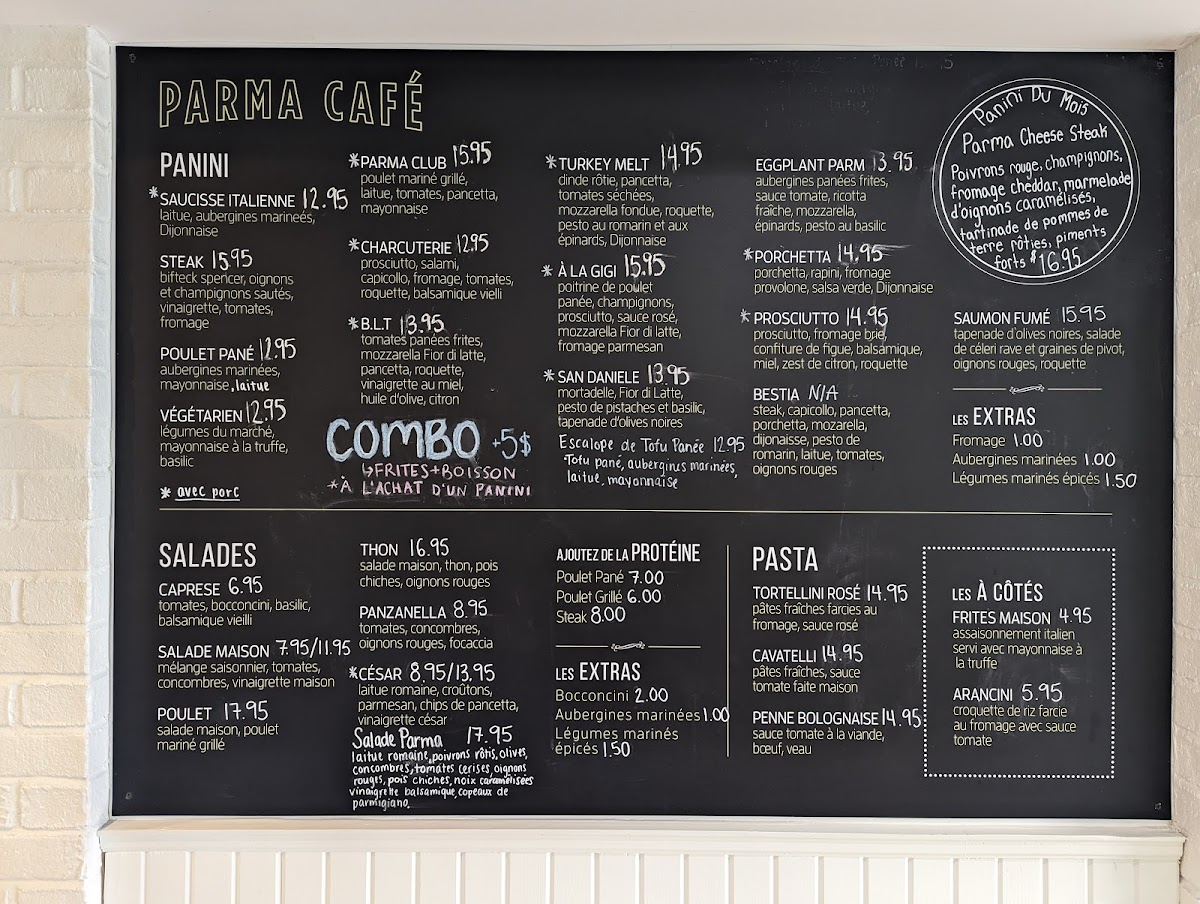 PARMA CAFÉ
PANINI
*SAUCISSE ITALIENNE 12.95
laitue, aubergines marineés,
Dijonnaise
STEAK 15.95
bifteck spencer, oignons
et champignons sautés,
vinaigrette, tomates,
fromage
POULET PANÉ 12.95
aubergines marinées,
mayonnaise, laitue
VÉGÉTARIEN 12.95
légumes du marché,
mayonnaise à la truffe,
basilic
* avec porc
*PARMA CLUB 15.95
poulet mariné grillé,
laitue, tomates, pancetta,
mayonnaise
*CHARCUTERIE 12.95
prosciutto, salami,
capicollo, fromage, tomates,
roquette, balsamique vielli
*B.L.T 13.95
tomates panées frites,
mozzarella Fior di latte,
pancetta, roquette,
vinaigrette au miel,
huile d'olive, citron
COMBO +5$
↳FRITES+BOISSON
*À L'ACHAT D'UN PANINI
*TURKEY MELT 14.95
dinde rôtie, pancetta,
tomates séchées,
mozzarella fondue, roquette,
pesto au romarin et aux
épinards, Dijonnaise
*À LA GIGI 15.95
poitrine de poulet
panée, champignons,
prosciutto, sauce rosé,
mozzarella Fior di latte,
fromage parmesan
*SAN DANIELE 13.95
mortadelle, Fior di Latte,
pesto de pistaches et basilic,
tapenade d'olives noires
Escalope de Tofu Panée 12.95
Tofu pané, aubergines marinées,
laitue, mayonnaise
EGGPLANT PARM 13.95
aubergines panées frites,
sauce tomate, ricotta
fraîche, mozzarella,
épinards, pesto au basilic
*PORCHETTA 14.95
porchetta, rapini, fromage
provolone, salsa verde, Dijonnaise
*PROSCIUTTO 14.95
prosciutto, fromage brie,
confiture de figue, balsamique,
miel, zest de citron, roquette
BESTIA N/A
steak, capicollo, pancetta,
porchetta, mozarella,
dijonaisse, pesto de
romarin, laitue, tomates,
oignons rouges
Panini Du Mois
Parma Cheese Steak
Poivrons rouge, champignons,
fromage cheddar, marmelade
d'oignons caramélisés,
tartinade de pommes de
terre rôties, piments
forts $16.95
SAUMON FUMÉ 15.95
tapenade d'olives noires, salade
de céleri rave et graines de pivot,
oignons rouges, roquette
LES EXTRAS
Fromage 1.00
Aubergines marinées 1.00
Légumes marinés épicés 1.50
SALADES
CAPRESE 6.95
tomates, bocconcini, basilic,
balsamique vieilli
SALADE MAISON 7.95/11.95
mélange saisonnier, tomates,
concombres, vinaigrette maison
POULET 17.95
salade maison, poulet
mariné grillé
THON 16.95
salade maison, thon, pois
chiches, oignons rouges
PANZANELLA 8.95
tomates, concombres,
oignons rouges, focaccia
*CÉSAR 8.95/13.95
laitue romaine, croûtons,
parmesan, chips de pancetta,
vinaigrette césar
Salade Parma 17.95
laitue romaine, poivrons rôtis, olives,
concombres, tomates cerises, oignons
rouges, pois chiches, noix caramélisées
vinaigrette balsamique, copeaux de
parmigiano.
AJOUTEZ DE LA PROTÉINE
Poulet Pané 7.00
Poulet Grillé 6.00
Steak 8.00
LES EXTRAS
Bocconcini 2.00
Aubergines marinées 1.00
Légumes marinés
épicés 1.50
PASTA
TORTELLINI ROSÉ 14.95
pâtes fraîches farcies au
fromage, sauce rosé
CAVATELLI 14.95
pâtes fraîches, sauce
tomate faite maison
PENNE BOLOGNAISE 14.95
sauce tomate à la viande,
bœuf, veau
LES À CÔTÉS
FRITES MAISON 4.95
assaisonnement italien
servi avec mayonnaise à
la truffe
ARANCINI 5.95
croquette de riz farcie
au fromage avec sauce
tomate